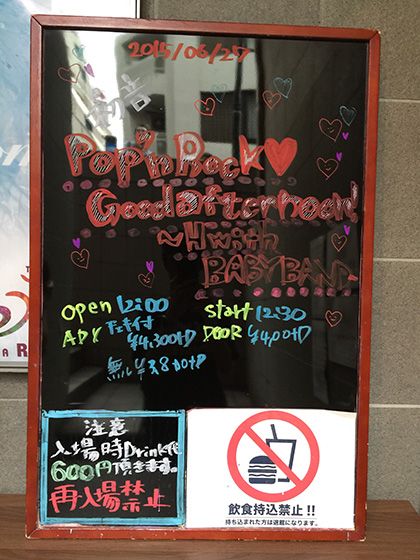 2015/06/27
初音
Pop'n Rock♥
Good afternoon!
~H with
BABY BAND~
open 12:00
start 12:30
ADV チェキ付 ¥4,300+D
DOOR ¥4,0+D
無ル ¥3,800+D
注意
入場時Drink代
600円頂きます。
再入場禁止
飲食持込禁止!!
持ち込まれた方は退館になります。